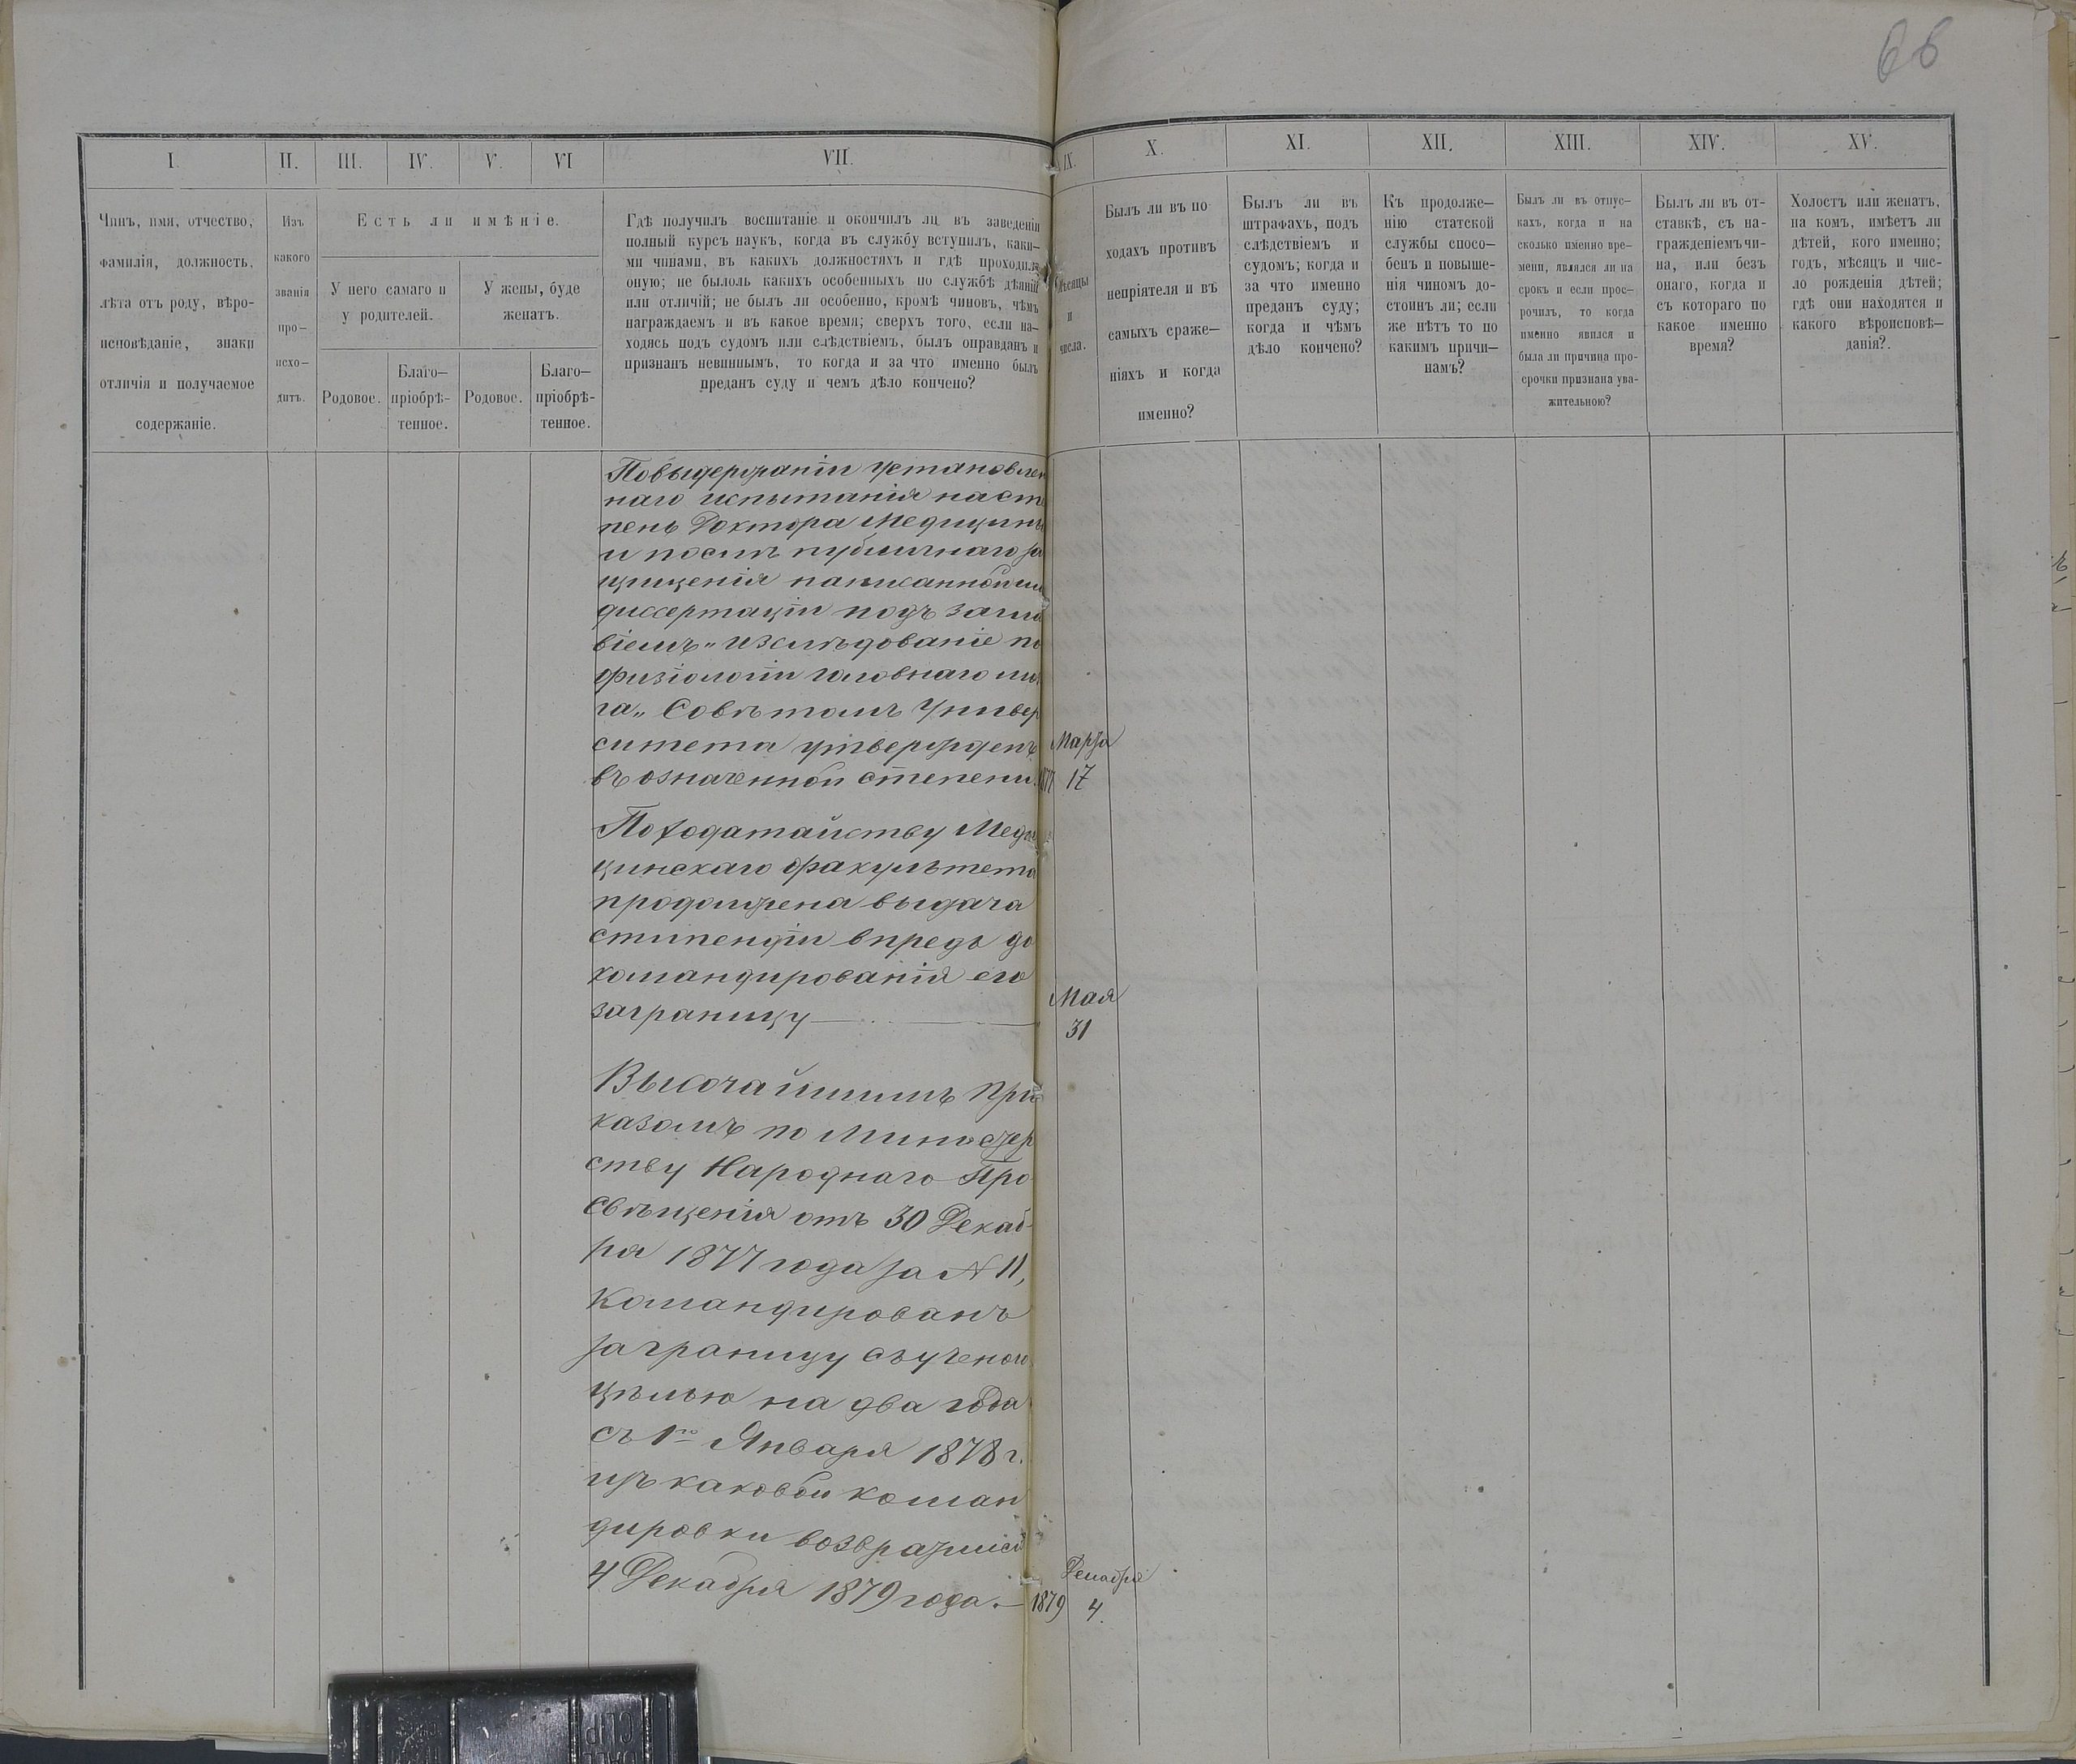 66
I.
II.
III.
IV.
V.
VI
VII.
IX.
X.
XI.
XII.
XIII.
XIV.
XV.
Чинъ, имя, отчество,
фамилія, должность,
лѣта отъ роду, вѣро-
исповѣданіе, знаки
отличія и получаемое
содержаніе.
Изъ
какого
званія
про-
исхо-
дитъ.
Есть ли имѣніе.
У него самаго и
у родителей.
У жены, буде
женатъ.
Родовое.
Благо-
пріобрѣ-
тенное.
Родовое.
Благо-
пріобрѣ-
тенное.
Гдѣ получилъ воспитаніе и окончилъ ли въ заведеніи
полный курсъ наукъ, когда въ службу вступилъ, каки-
ми чинами, въ какихъ должностяхъ и гдѣ проходилъ
оную; не былоль какихъ особенныхъ по службѣ дѣяній
или отличій; не былъ ли особенно, кромѣ чиновъ, чѣмъ
награждаемъ и въ какое время; сверхъ того, если на-
ходясь подъ судомъ или слѣдствіемъ, былъ оправданъ и
признанъ невиннымъ, то когда и за что именно былъ
преданъ суду и чемъ дѣло кончено?
Мѣсяцы
и
числа.
Былъ ли въ по
ходахъ противъ
непріятеля и въ
самыхъ сраже-
ніяхъ и когда
именно?
Былъ ли въ
штрафахъ, подъ
слѣдствіемъ и
судомъ; когда и
за что именно
преданъ суду;
когда и чѣмъ
дѣло кончено?
Къ продолже-
нію статской
службы спосо-
бенъ и повыше-
нія чиномъ до-
стоинъ ли; если
же нѣтъ то по
какимъ причи-
намъ?
Былъ ли въ отпус-
кахъ, когда и на
сколько именно вре-
мени, являлся ли на
срокъ и если прос-
рочилъ, то когда
именно явился и
была ли причина про-
срочки признана ува-
жительною?
Былъ ли въ от-
ставкѣ, съ на-
гражденіемъ чи-
на, или безъ
онаго, когда и
съ котораго по
какое именно
время?
Холостъ или женатъ,
на комъ, имѣетъ ли
дѣтей, кого именно;
годъ, мѣсяцъ и чис-
ло рожденія дѣтей;
гдѣ они находятся и
какого вѣроисповѣ-
данія?.
По выдержаніи установлен
наго испытанія на сте
пень Доктора Медицины
и послѣ публичнаго за
щищенія написанной им
диссертаціи подъ загла
віемъ „изслѣдованіе по
физіологіи головнаго моз
га„ Совѣтомъ Универ
ситета утвержденъ
въ означенной степени.
Марта
1877 17
По ходатайству Меди
цинскаго факультета
продолжена выдача
стипендіи впредь до
командированія его
заграницу
Мая
31
Высочайшимъ при
казомъ по Министер
ству Народнаго Про
свѣщенія отъ 30 Декаб
ря 1877 года за № 11,
командированъ
заграницу съ ученою
цѣлью на два года
съ 1го Января 1878 г.
изъ каковой коман
дировки возвратился
4 Декабря 1879 года.—
Декабря
1879 4.